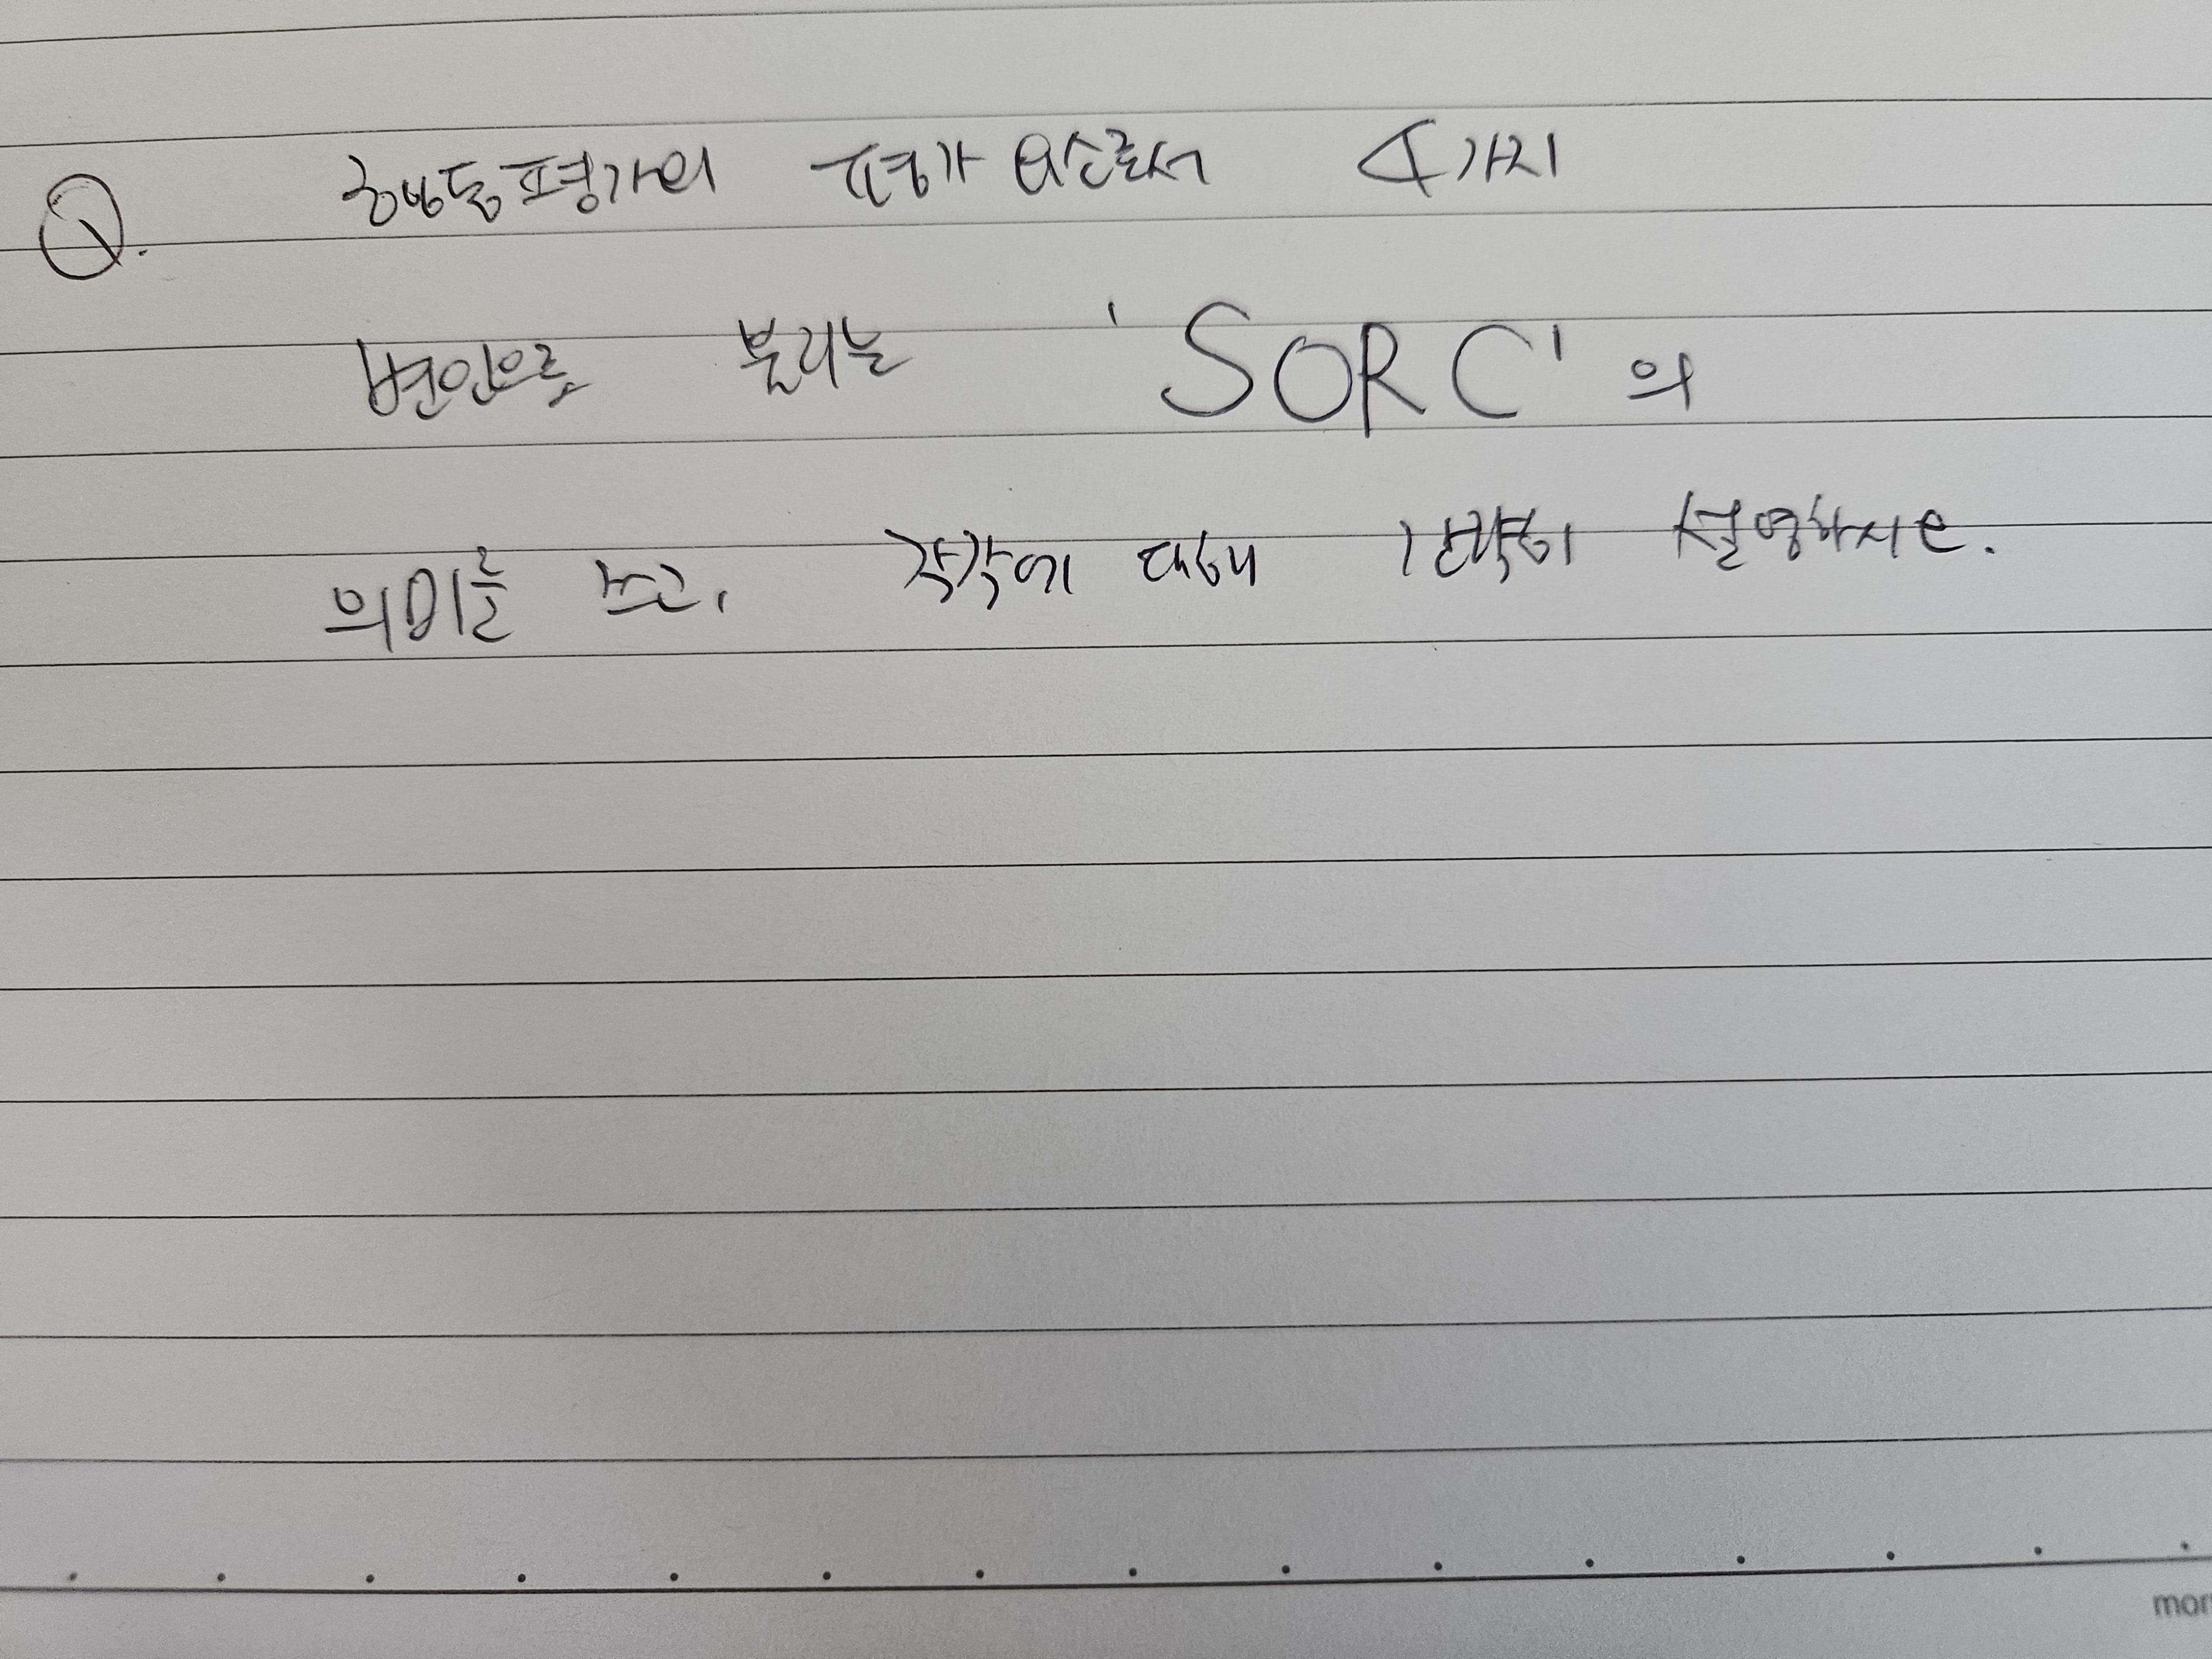 Q. 행동평가의 평가요소로서 4가지
변인으로 불리는 'SORC'의
의미를 쓰고, 각각에 대해 간략히 설명하시오.
mor